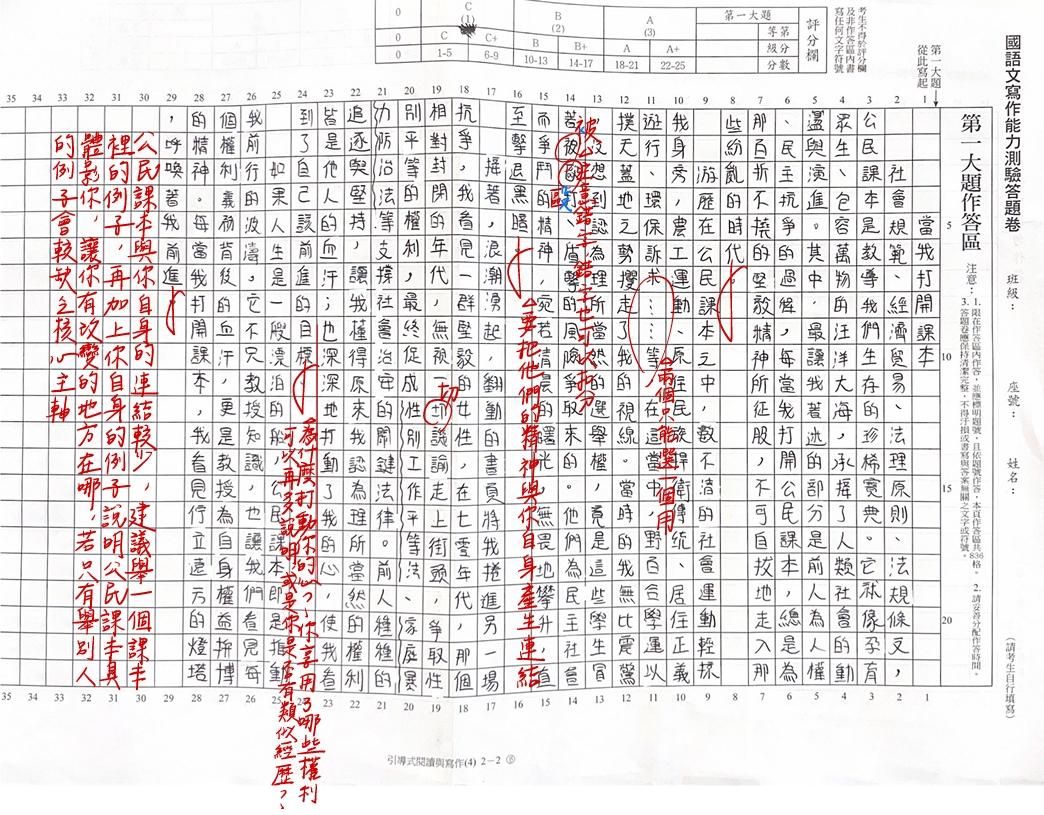 國語文寫作能力測驗答題卷
班級：
座號：
姓名：
（請考生自行填寫）
第一大題從此寫起
第一大題作答區
注意：1.限在作答區內作答，並應標明題號，且依題號作答，本頁作答區共836格。 2.請妥善分配作答時間。
3.答題卷應保持清潔完整，不得汙損或書寫與答案無關之文字或符號。
考生不得於評分欄及非作答區內書寫任何文字符號
評分欄
第一大題
等第
級分
分數
A (3) A+ 22-25 A 18-21
B (2) B+ 14-17 B 10-13
C (1) C+ 6-9 C 1-5
0 0 0
當我打開課本
社會規範、經濟貿易、法理原則、法規條文，
公民課本是教導我們生存的珍稀寶典。它就像孕育
眾生、包容萬物的汪洋大海，承接了人類社會的動
盪與演進。其中，最讓我著迷的部分是前人為人權
、民主抗爭的過程，每當我打開公民課本，總是為
那百折不撓的堅毅精神所征服，不可自拔地走入那
些紛亂的時代。
游歷在公民課本之中，數不清的社會運動輕
我身旁，農工運動、原住民族捍衛傳統、居住正義
遊行、環保訴求……等在這當中，野百合學運以
撲天蓋地之勢攫走了我的視線。當時的我無比震驚
沒想到認為理所當然的選舉權，竟是這些學生冒
著被、盾擊的風險爭取來的。他們為民主社會
而爭鬥的精神，宛若清晨的曙光，無畏地攀升，直
至擊退黑暗。
接著，浪潮湧起，翻動的書頁將我捲進另一場
抗爭，我看見一群堅毅的女性，在七零年代，那個
相對封閉的年代，無視一切議論走上街頭，爭取性
別平等的權利，最終促成性別工作平等法、家庭暴
力防治法等撐社會治安的關鍵法律。前人種種的
追逐與堅持，讓我懂得原來我認為理所當然的權利
皆是他人的血汗；也深深地打動了我的心，使我看
到了自己前進的目標。
如果人生是一艘漂泊的船，公民課本即是推動
我前行的波濤，它不只教授知識，也讓我們看見每
個權利義務背後的血汗，更是教授為自身權益拚博
的精神。每當我打開課本，我看見佇立遠方的燈塔
，呼喚著我前進。
兩個只能選一個用
被 注意錯字、錯字也可以扣分
要把他們的精神與你自身產生連結
切
為什麼打動你的心？你享用了哪些權利
可以再多說明或是你是否有類似經歷？
公民課本與你自身的連結較少，建議舉一個課本
裡的例子，再加上你自身的例子說明公民課本具
體影響你，讓你有改變的地方在哪，若只有舉別人
的例子會較缺乏核心主軸
引導式閱讀與寫作(4) 2－2